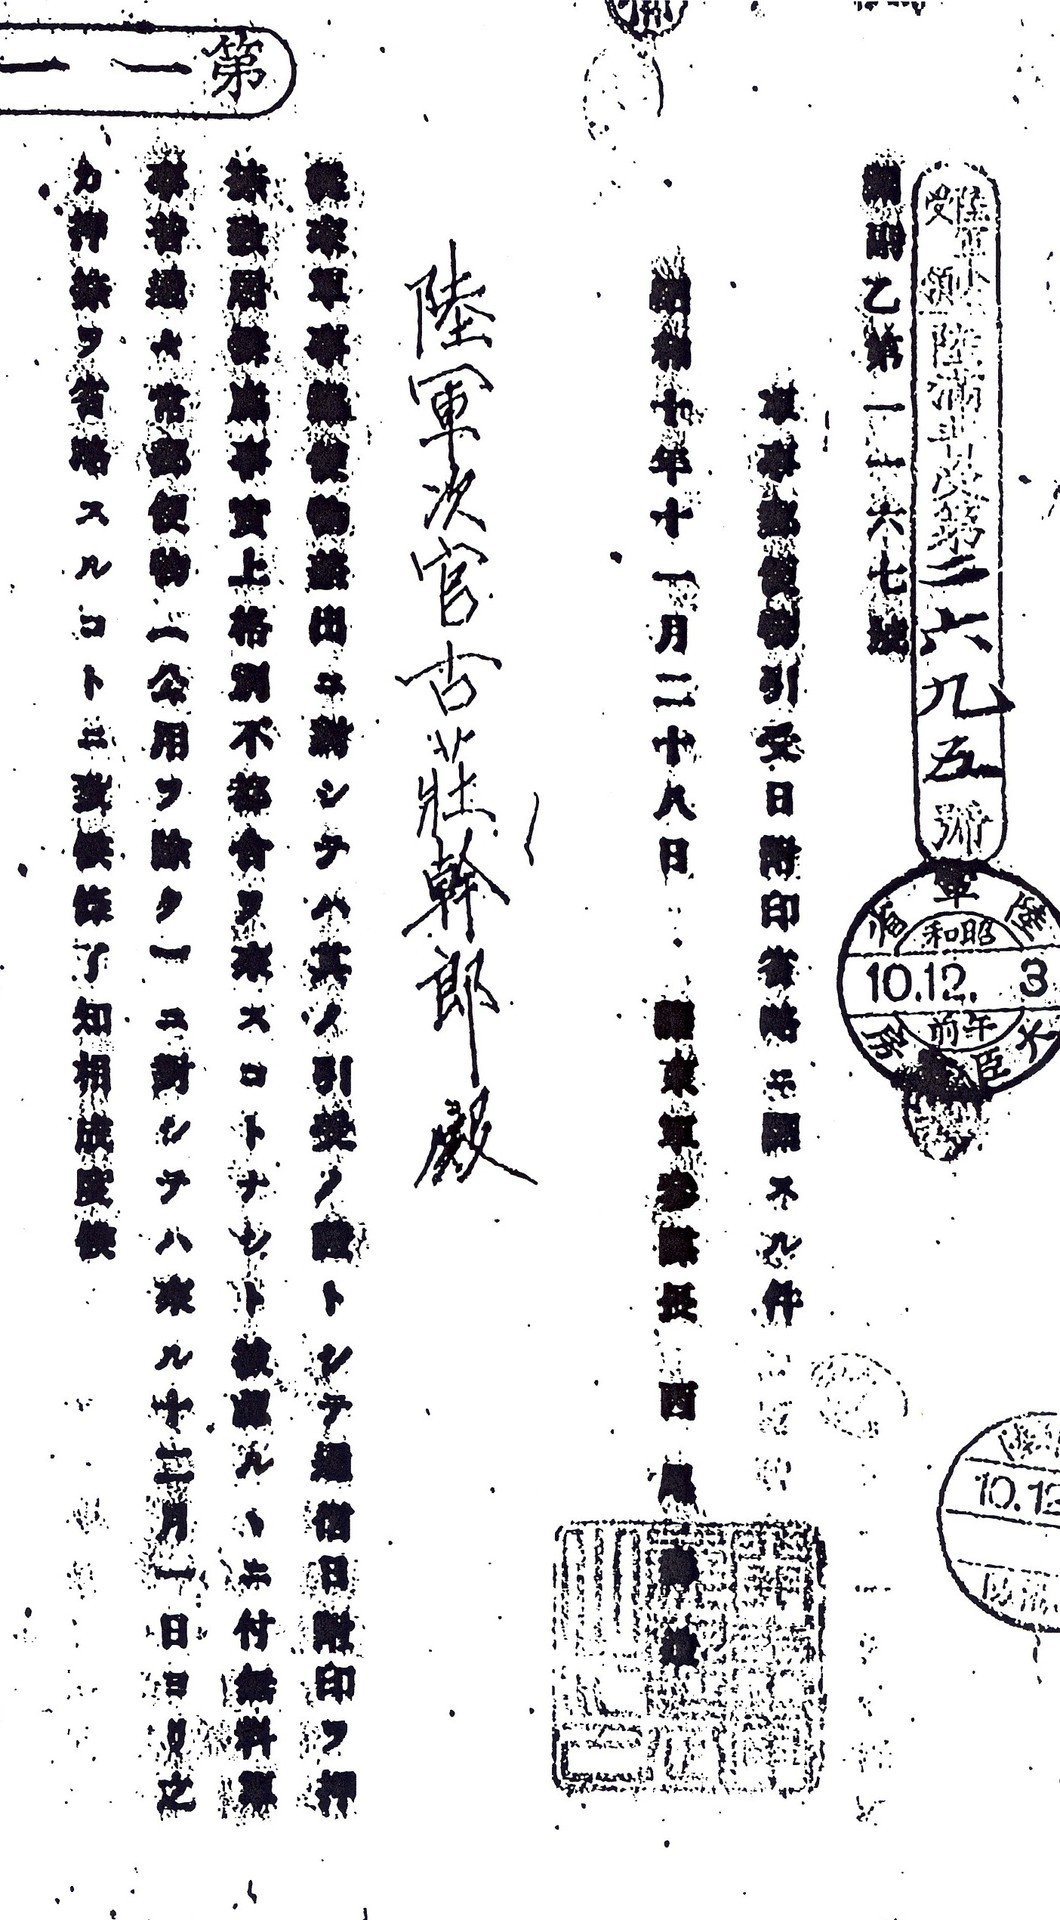 陸軍省
受領
陸満
第二六九五號
陸軍省
昭和
10.12.3
午前
大臣
房
10.12
副乙第一一六七號
軍事郵便物引受日附印省略ニ關スル件
昭和十年十一月二十八日
關東軍參謀長 西尾壽造
陸軍次官古莊幹郎殿
從來軍事郵便物差出ニ對シテハ其ノ引受ノ證トシテ通信日附印ヲ押
捺致居候處事實上格別不都合ヲ來スコトナシト被認ルルニ付無料軍
事普通通常郵便物(公用ヲ除ク)ニ對シテハ來ル十二月一日ヨリ之
カ押捺ヲ省略スルコトニ致候條了知相成度候
第一一